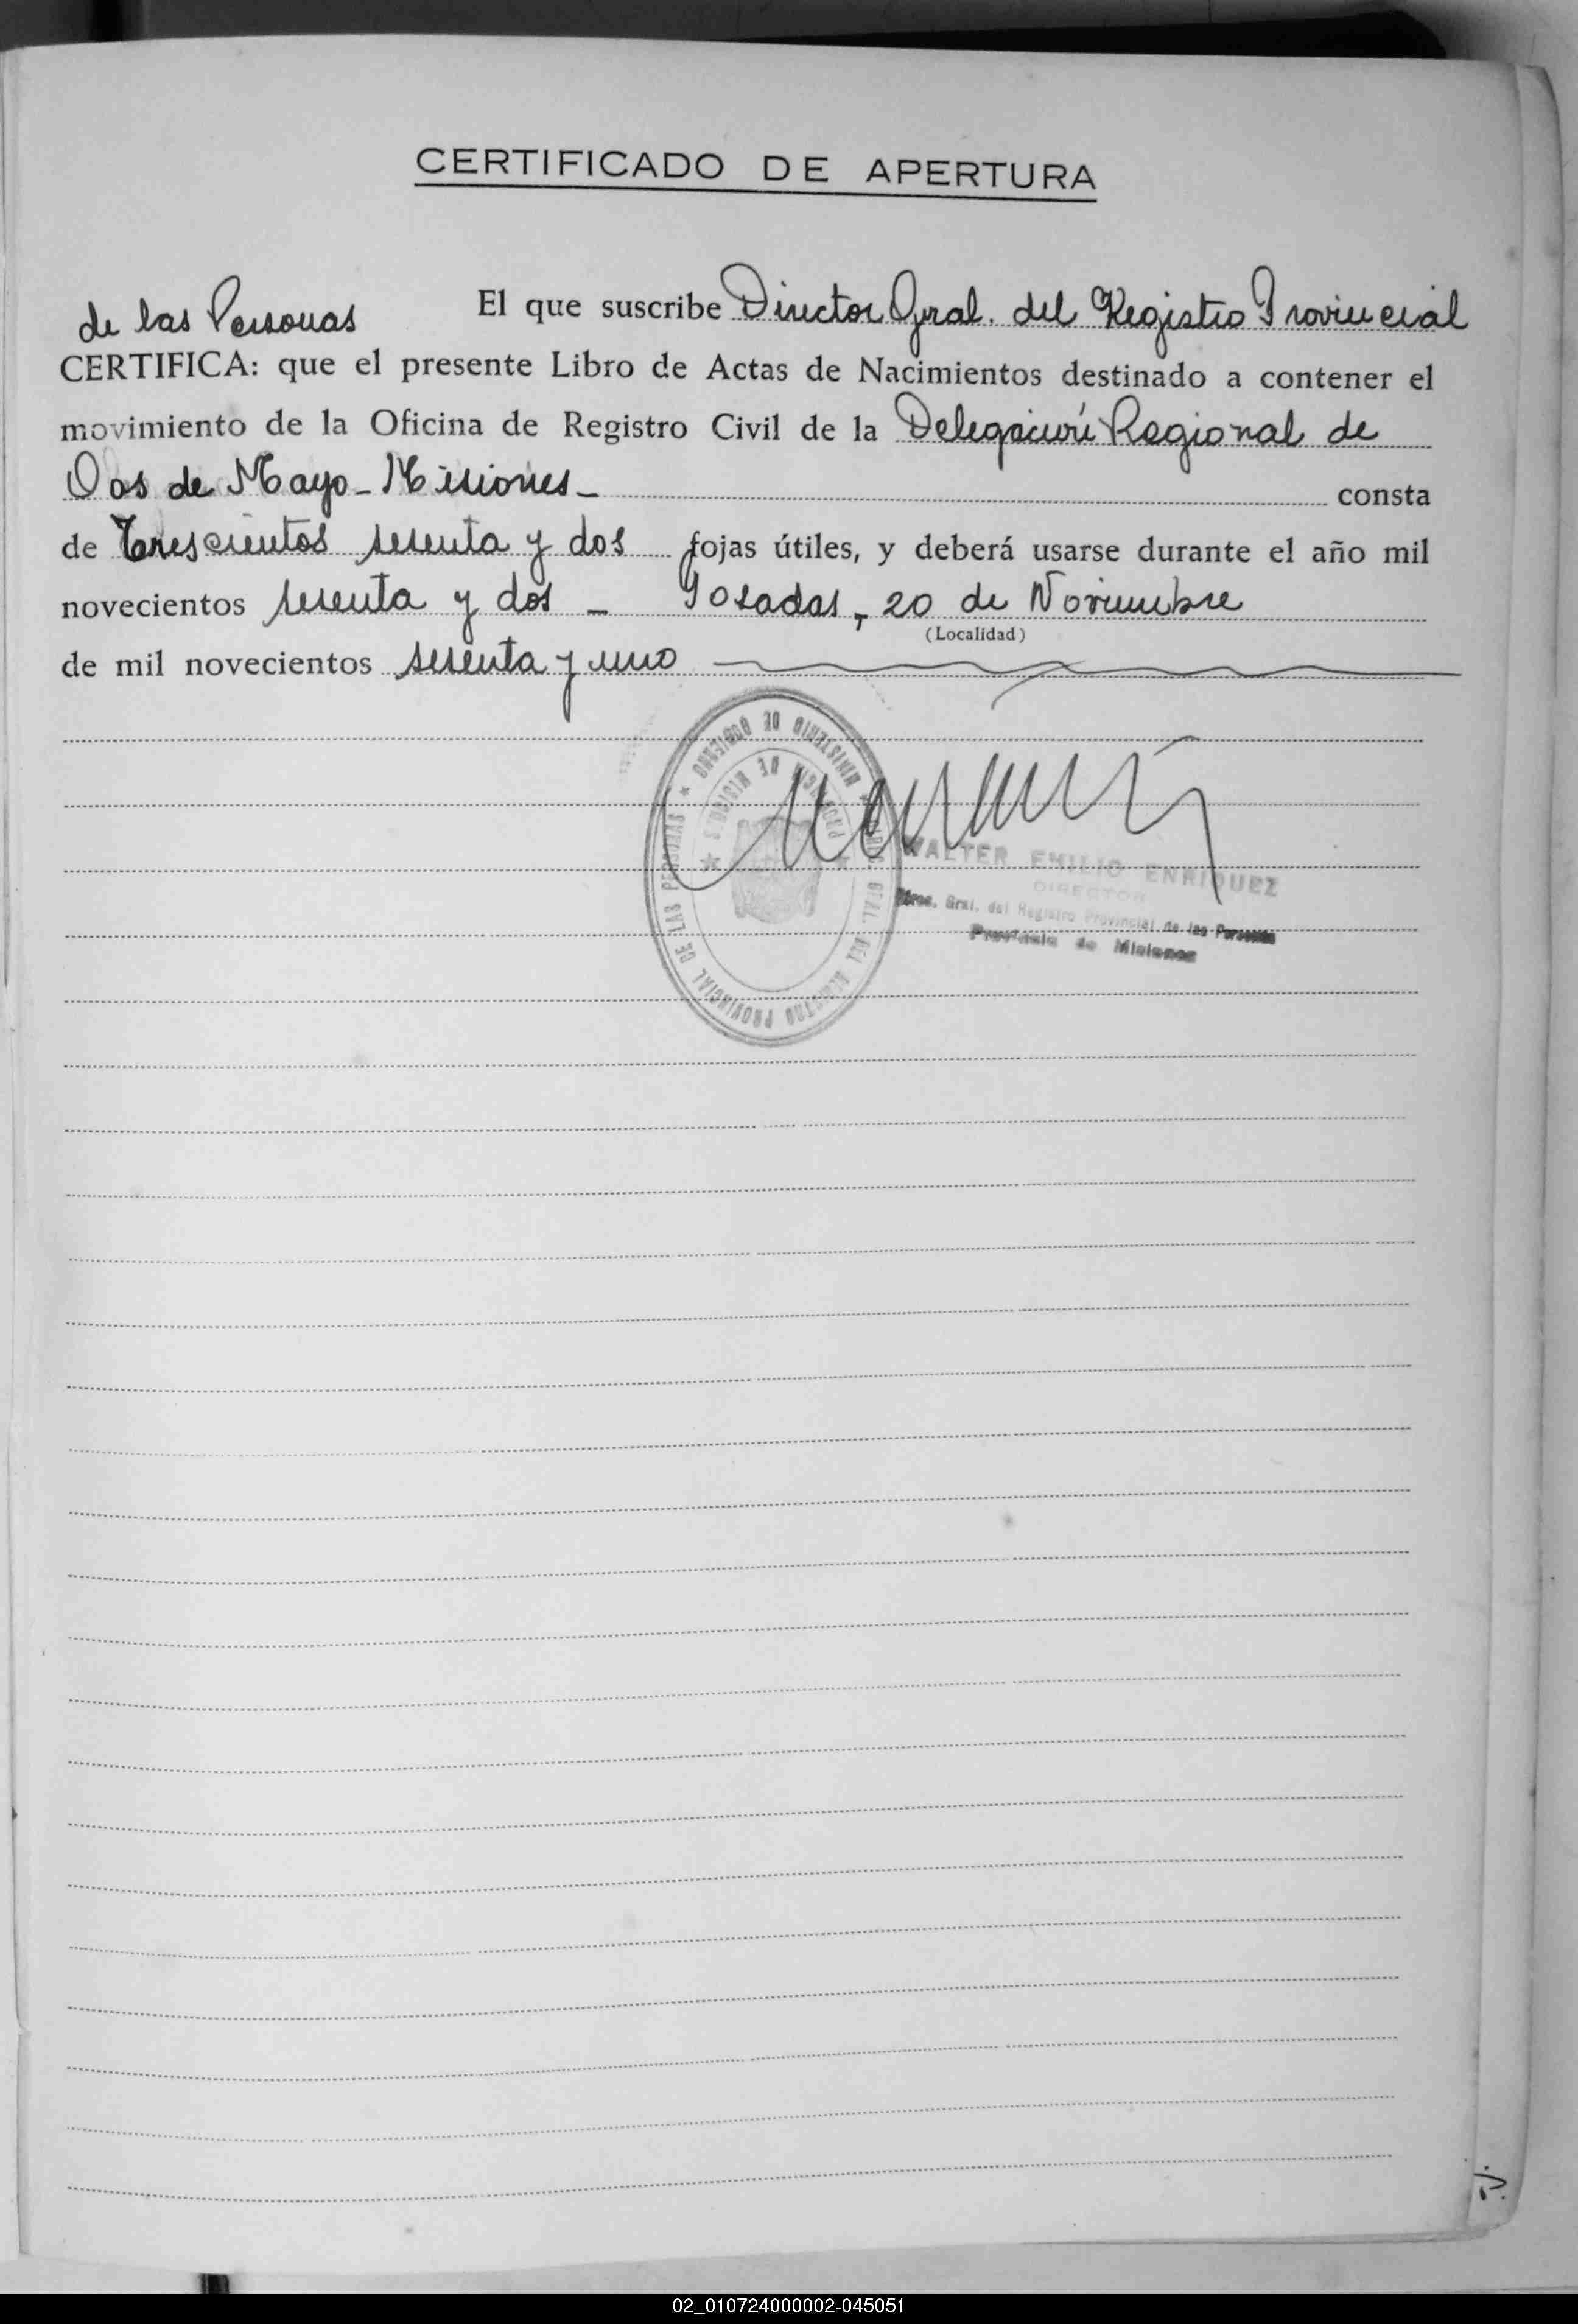 CERTIFICADO DE APERTURA
El que suscribe Director Gral. del Registro Provincial
de las Personas
CERTIFICA: que el presente Libro de Actas de Nacimientos destinado a contener el
movimiento de la Oficina de Registro Civil de la Delegación Regional de
Dos de Mayo - Misiones - consta
de Trescientos sesenta y dos fojas útiles, y deberá usarse durante el año mil
novecientos sesenta y dos - Posadas, 20 de Noviembre
(Localidad)
de mil novecientos sesenta y uno
MINISTERIO DE GOBIERNO * DIREC. GRAL. DEL REGISTRO PROVINCIAL DE LAS PERSONAS *
PROVINCIA DE MISIONES
WALTER EMILIO ENRIQUEZ
DIRECTOR
Direc. Gral. del Registro Provincial de las Personas
Provincia de Misiones
02_010724000002-045051